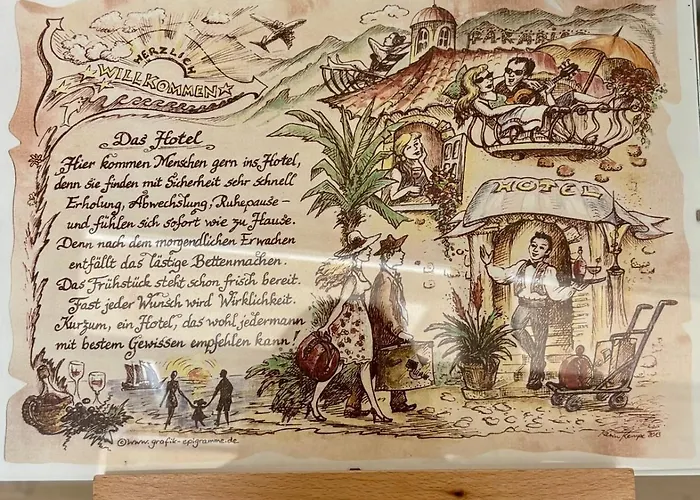 HERZLICH
WILLKOMMEN
Das Hotel
Hier kommen Menschen gern ins Hotel,
denn sie finden mit Sicherheit sehr schnell
Erholung, Abwechslung, Ruhepause –
und fühlen sich sofort wie zu Hause.
Denn nach dem morgendlichen Erwachen
entfällt das lästige Bettenmachen.
Das Frühstück steht schon frisch bereit.
Fast jeder Wunsch wird Wirklichkeit.
Kurzum, ein Hotel, das wohl jedermann
mit bestem Gewissen empfehlen kann!
PARADISO
HOTEL
©www.grafik-epigramme.de